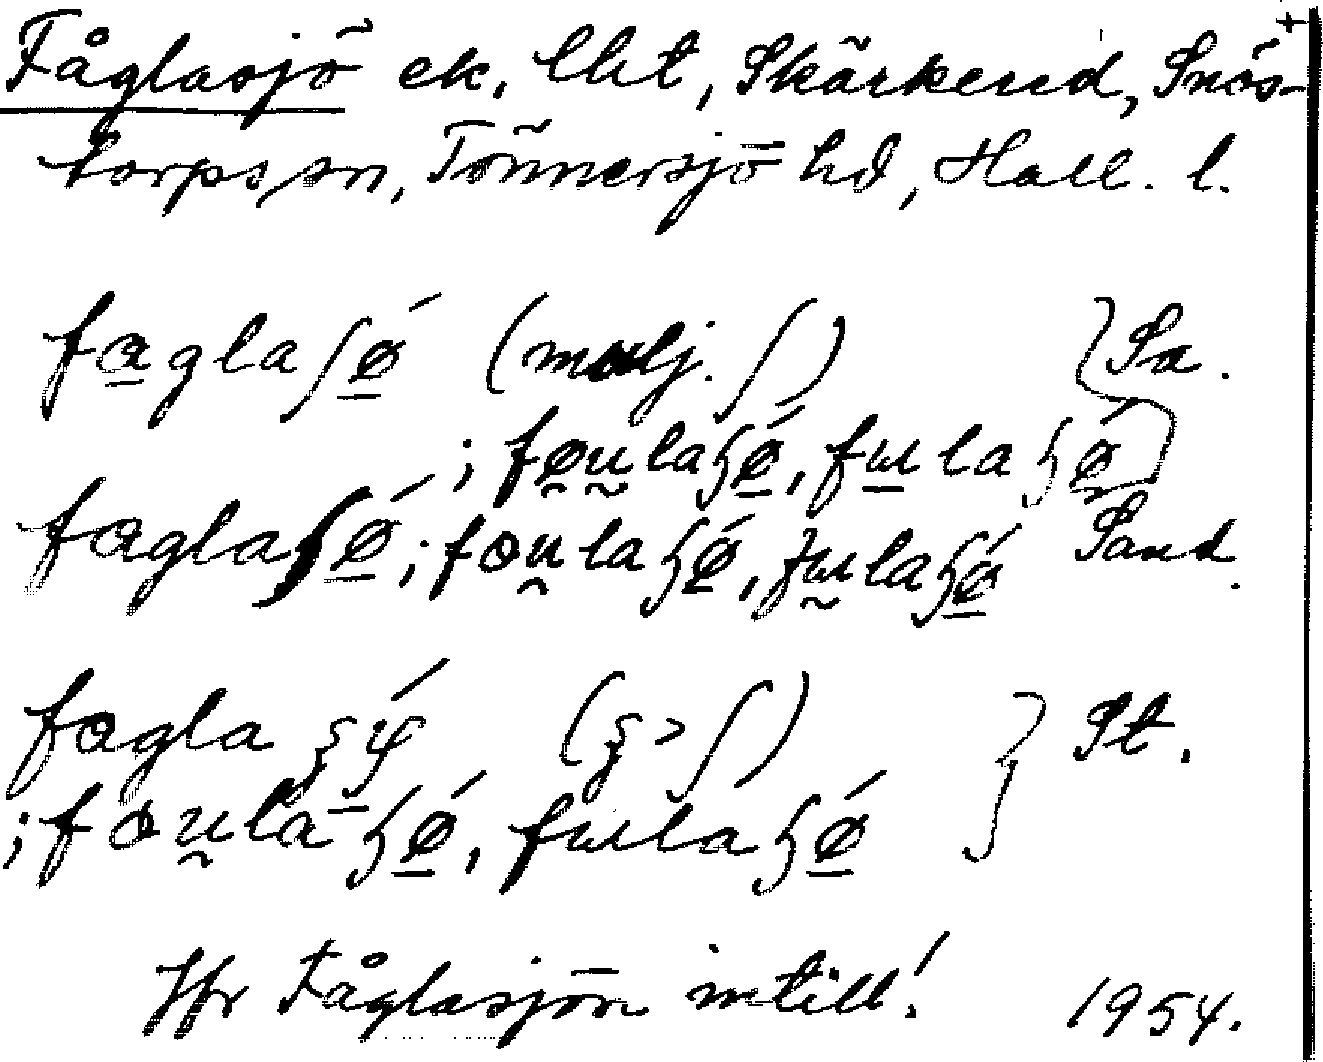 Fåglasjö ek, lht, Skärkered, Snös-
torps sn, Tönnersjö hd, Hall. l.
faglaʃǿ (mulj. ʃ) } Sa.
; fou̯laɧǿ, fɯlaɧǿ
faglaʃǿ; fou̯laɧǿ, fɯlaɧǿ Sand.
fagla (ʃ) } St.
; fou̯laɧǿ, fɯlaɧǿ
Jfr Fåglasjön intill! 1954.